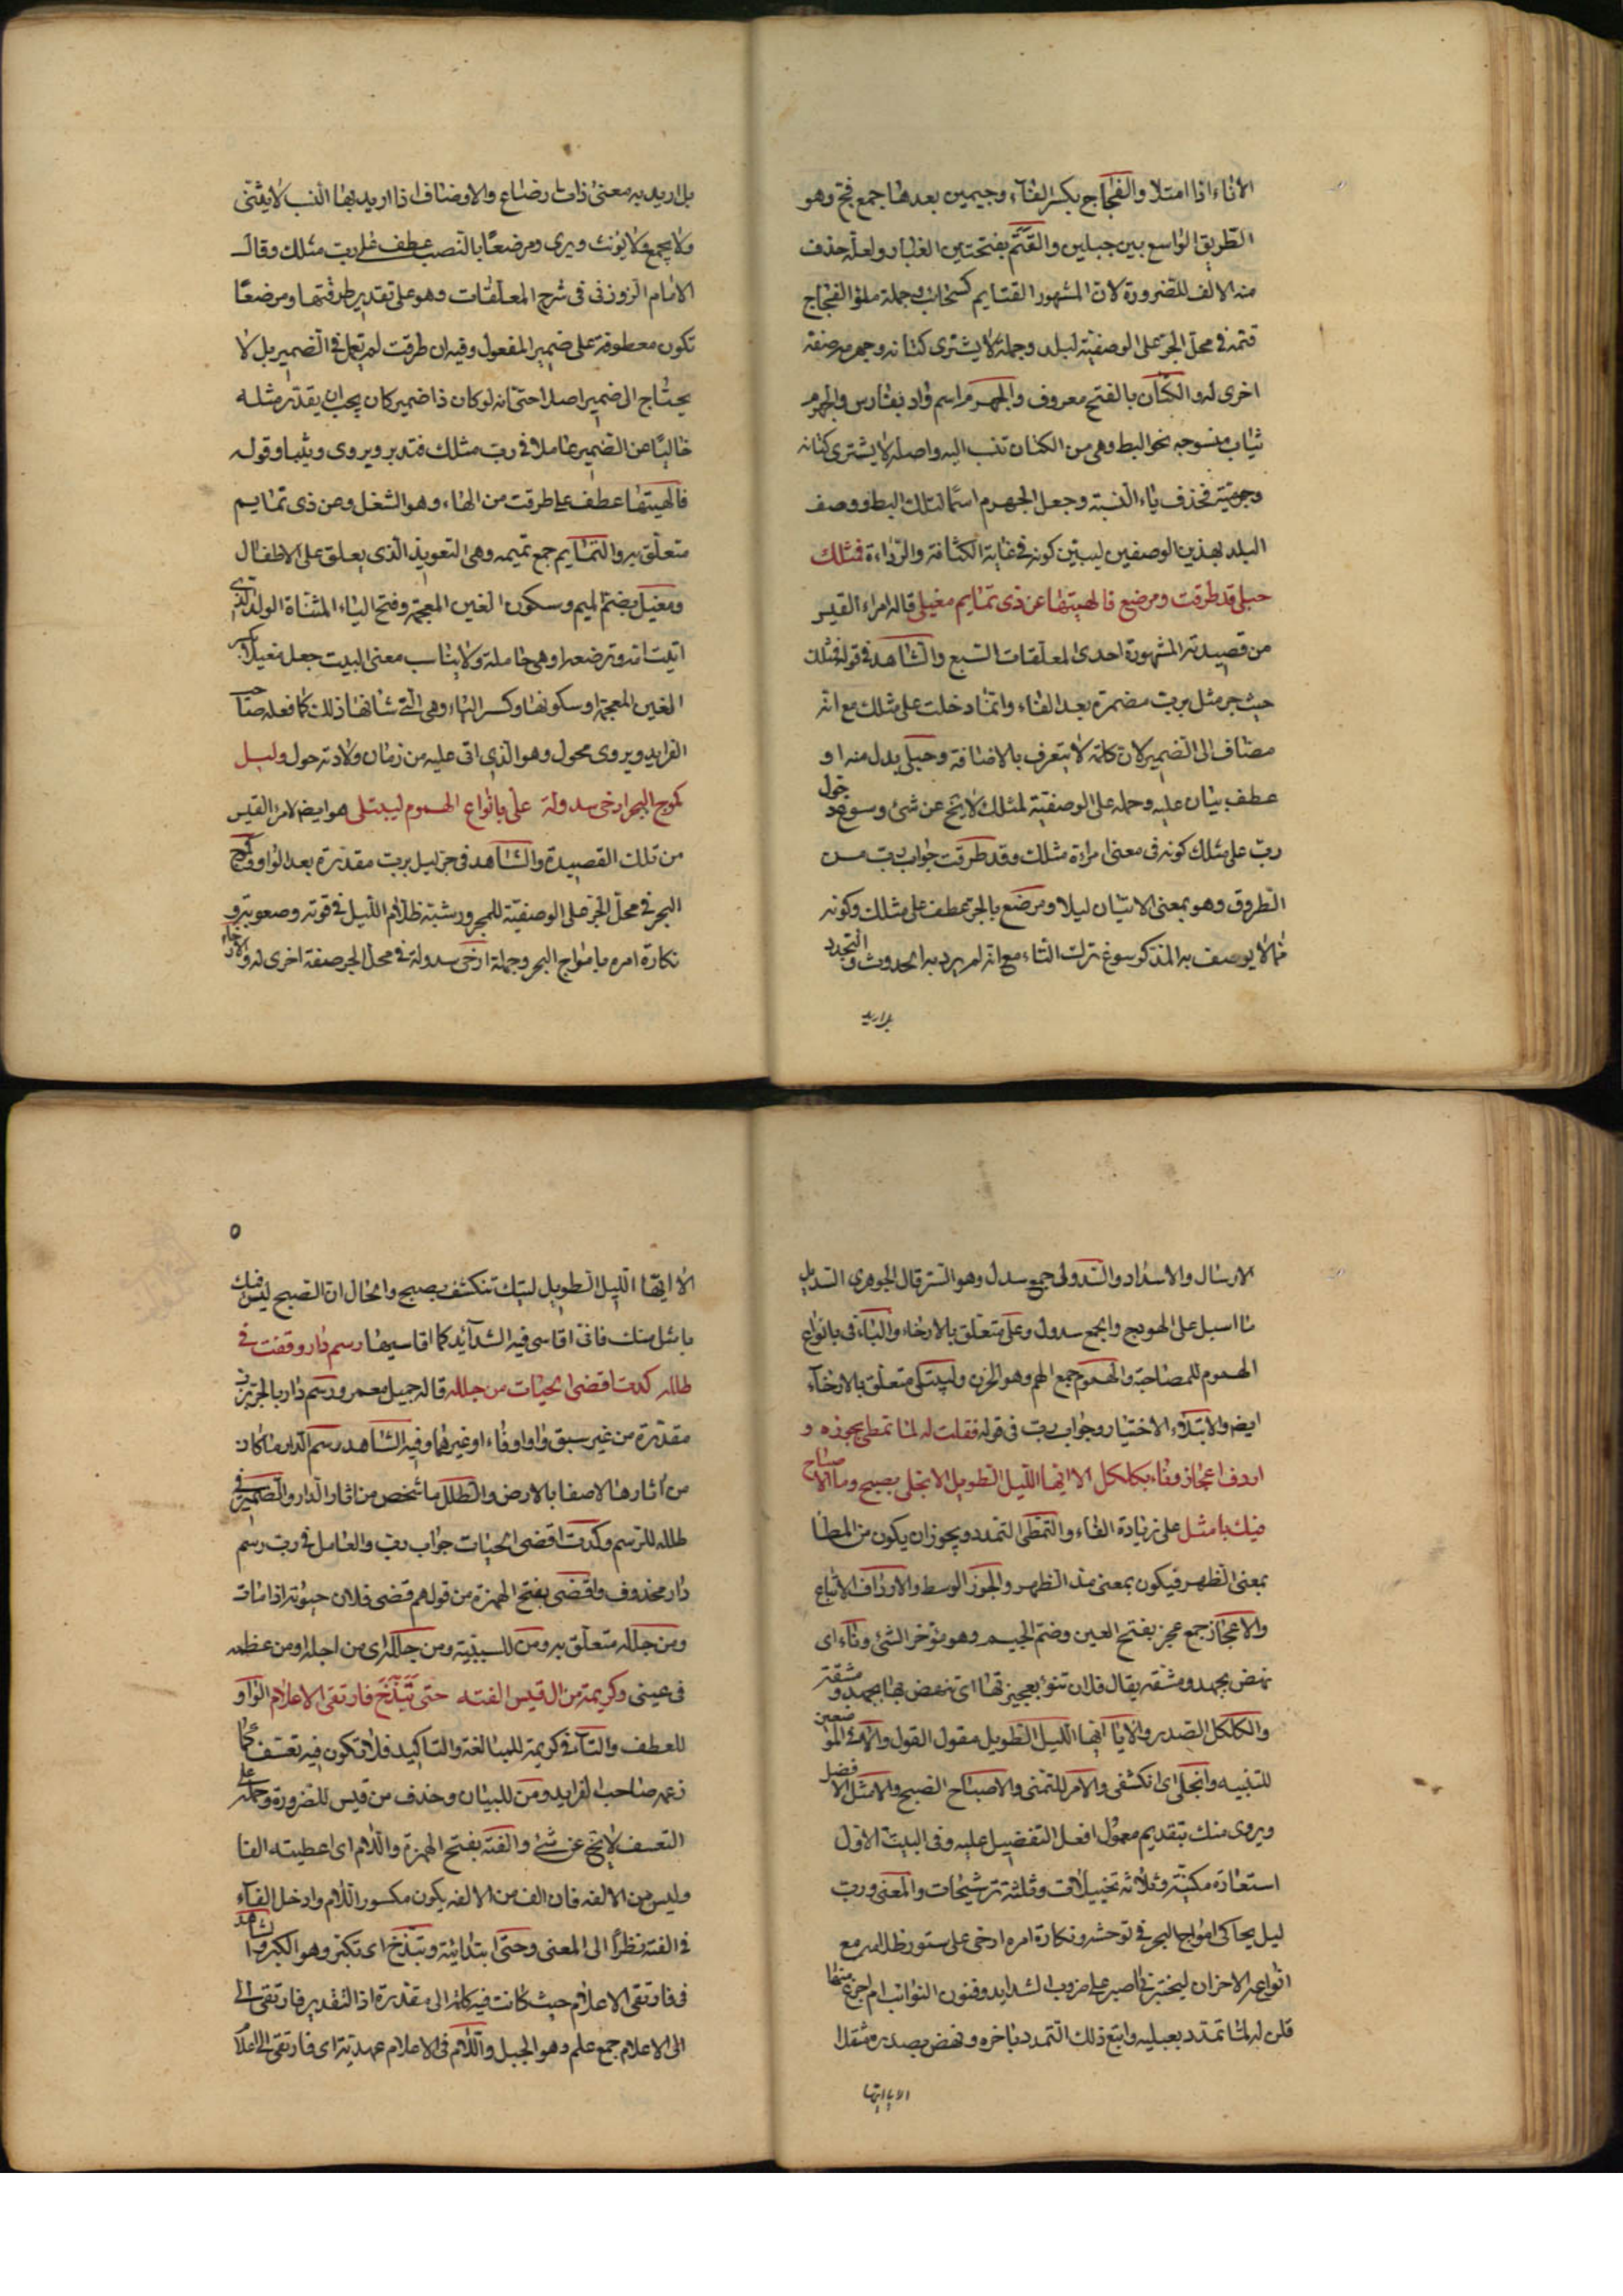 الاناء اذا امتلا والفجاج بكسر الفآء وجيمين بعدها جمع فج وهو
الطريق الواسع بين جبلين والقتم بفتحتين الغبار ولعله حذف
منه الالف للضرورة لان المشهور القتايم كسحاب وجملة ملؤ الفجاج
قتمه فى محل الجر على الوصفية لبلد وجملة لا يشترى كتانه وجهرمه صفة
اخرى له والكتان بالفتح معروف والجهرم اسم واد بفارس والجهرم
ثياب منسوجه نحو البط وهى من الكتان تنسب اليه واصله لا يشترى كتانه
وجهرميته فحذف ياء النسبة وجعل الجهرم اسما لتلك البط ووصف
البلد بهذين الوصفين ليبين كونه فى غاية الكثافة والرداءة فمثلك
حبلى قد طرقت ومرضع فالهيتها عن ذى تمايم مغيل قاله امراء القيس
من قصيدته المشهورة احدى المعلقات السبع والشاهد فى قوله فمثلك
حيث جر مثل برب مضمرة بعد الفاء وانما دخلت على مثلك مع انه
مضاف الى الضمير لان كلمة لا يتعرف بالاضافة وحبلى بدل منه او
عطف بيان عليه وحمله على الوصفية لمثلك لا يخ عن شئ وسوغ دخول
رب على مثلك كونه فى معنى امراة مثلك وقد طرقت جواب رب من
الطروق وهو بمعنى الاتيان ليلا ومرضع بالجر عطف على مثلك وكونه
مما لا يوصف به المذكر سوغ ترك التاء مع انه لم يرد به الحدوث والتجدد
بل اريد
بل اريد به معنى ذات رضاع والاوصاف اذا اريد بها النسب لا يثنى
ولا يجمع ولا يؤنث ويرى ومرضعا بالنصب عطف على رب مثلك وقال
الامام الزوزنى فى شرح المعلقات وهو على تقدير طرقتها ومرضعا
تكون معطوفة على ضمير المفعول وفيه ان طرقت لم تعمل فى الضمير بل لا
يحتاج الى ضمير اصلا حتى انه لو كان ذا ضمير كان يجب ان يقدر مثله
خاليا عن الضمير عاملا فى رب مثلك فتدبر ويروى وثيبا وقوله
فالهيتها عطف على طرقت من الهاء وهو الشغل وعن ذى تمايم
متعلق به والتمايم جمع تميمه وهى التعويذ الذى يعلق على الاطفال
ومغيل بضم الميم وسكون الغين المعجمة وفتح الياء المثناة الولد الذى
اتيت امه وترضعه او هى حاملة ولا يناسب معنى البيت جعل مغيلا بكسر
الغين المعجمة او سكونها وكسر الياء وهى التى شانها ذلك كما فعله صاحب
الفرايد ويروى محول وهو الذى اتى عليه من زمان ولادته حول وليل
كموج البحر ارخى سدوله على بانواع الهموم ليبتلى هو ايض لامرء القيس
من تلك القصيدة والشاهد فى جر ليل برب مقدرة بعد الواو وكموج
البحر فى محل الجر على الوصفية للمجرور شبه ظلام الليل فى قوته وصعوبته و
نكارة امره بامواج البحر وجملة ارخى سدوله فى محل الجر صفة اخرى له والارخاء
الارسال والاسداد والسدولى جمع سدل وهو الستر قال الجوهرى السديل
ما اسبل على الهودج والجمع سدول وعلى متعلق بالارخاء والباء فى بانواع
الهموم للمصاحبة والهموم جمع الهم وهو الحزن وليبتلى متعلق بالارخآء
ايض والابتلاء الاختبار وجواب رب فى قوله فقلت له لما تمطى بجوزه و
اردف اعجازا وناء بكلكل الا ايها الليل الطويل الا انجلى بصبح وما الاصباح
فيك بامثل على زيادة الفاء والتمطى التمدد ويجوز ان يكون من المطا
بمعنى الظهر فيكون بمعنى مد الظهر والجوز الوسط والارداف الاتباع
والاعجاز جمع عجز بفتح العين وضم الجيم وهو مؤخر الشئ وناء اى
نهض بجهد ومشقه يقال فلان تنؤ بعجيزتها اى تنهض بها بجهد ومشقة
والكلكل الصدر والا يا ايها الليل الطويل مقول القول والا فى الموضعين
للتنبيه وانجلى اى انكشفى والامر للتمنى والاصباح الصبح والامثل الافضل
ويروى منك بتقديم معمول افعل التفضيل عليه وفى البيت الاول
استعارة مكنية وثلاثه تخييلات وثلثة ترشيحات والمعنى ورب
ليل يحاكى امواج البحر فى توحشه ونكارة امره ارخى على ستور ظلامه مع
انواع الاحزان ليختبرنى اصبر على ضروب الشدايد وفنون النوائب ام اجزع منها
قلت له لما تمدد بصلبه واتبع ذلك التمدد بآخره ونهض بصدره مثقلا
الا يا ايها
٥
الا ايها الليل الطويل ليتك تنكشف بصبح والحال ان الصبح ليس فيك
بامثل منك فانى اقاسى فيه الشدآئد كما اقاسيها رسم دار وقفت فى
طلله كدت اقضى الحيات من جلله قاله جميل معمر ورسم دار بالجر برب
مقدرة من غير سبق واو او فاء او غيرهما وفيه الشاهد رسم الدار ما كان
من آثارها لاصقا بالارض والطلل ما شخص من اثار الدار والضمير فى
طلله للرسم وكدت اقضى الحيات جواب رب والعامل فى رب رسم
دار محذوف واقضى بفتح الهمزة من قولهم قضى فلان حيوته اذا مات
ومن جلله متعلق به ومن للسببية ومن جلله اى من اجله او من عظمه
فى عينى وكريمة من ال قيس الفته حتى تبذخ فارتقى الاعلام الواو
للعطف والتآء فى كريمة للمبالغة والتاكيد فلا تكون فيه تعسف كما
زعمه صاحب الفرايد ومن للبيان وحذف من قيس للضرورة وحمله على
التعسف لا يخ عن شئ والفته بفتح الهمزة واللام اى اعطيته الفا
وليس من الالفه فان الف من الالفه يكون مكسور اللام وادخل الفآء
فى الفته نظرا الى المعنى وحتى ابتدائية وتبذخ اى تكبر وهو الكبر والشاهد
فى فارتقى الاعلام حيث كانت فيه كلمة الى مقدرة اذ التقدير فارتقى الى
الى الاعلام جمع علم وهو الجبل واللام فى الاعلام عهدية اى فارتقى الى اعلا